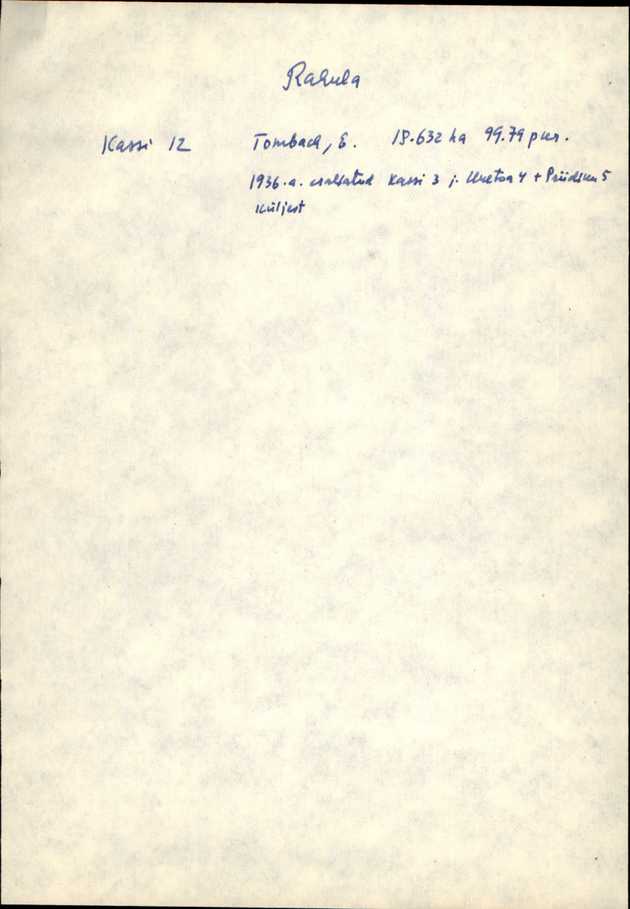 Rahula
Kassi 12 Tombach, E. 18.632 ha 99.79 pun.
1936.a. eraldatud Kassi 3 j. 4 + 5
küljest